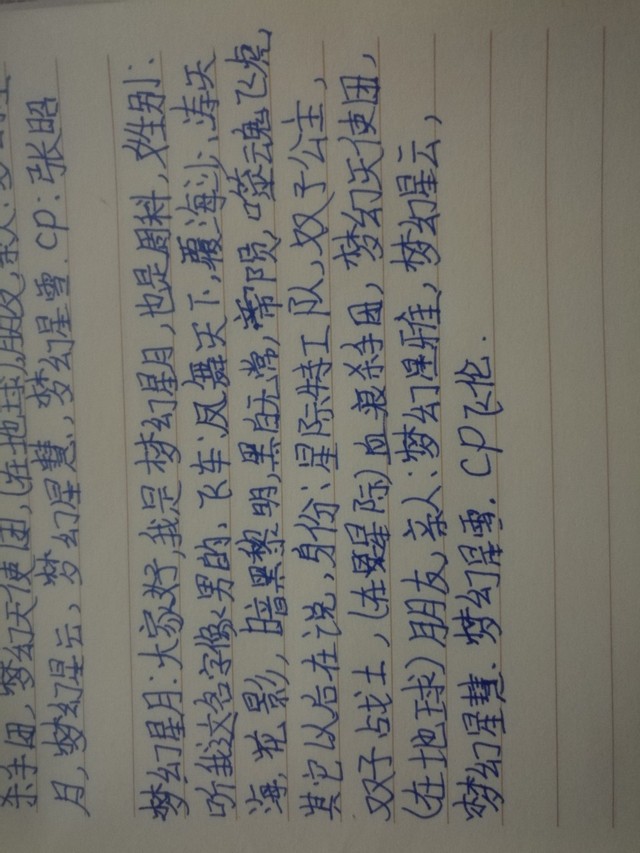 杀手团，梦幻天使团，(在地球)朋友，亲人：梦幻星
月，梦幻星云，梦幻星慧，梦幻星雪．CP：张昭
梦幻星月：大家好，我是梦幻星月，也是周料，姓别：
听我这名字像男的，飞车：凤舞天下，覆海沙，涛天
海，花影，暗黑黎明，黑白无常，陨，噬云魂飞虎，
其它以后在说，身份：星际特工队，双子公主，
双子战士，(在星际)血衰杀手团，梦幻天使团，
(在地球)朋友，亲人：梦幻星雅，梦幻星云，
梦幻星慧、梦幻星雪．CP飞伦．